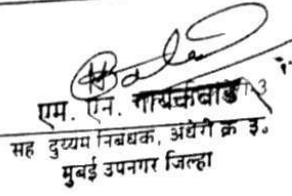 एम. एन. गायकवाड
सह दुय्यम निबंधक, अंधेरी क्र ३.
मुंबई उपनगर जिल्हा